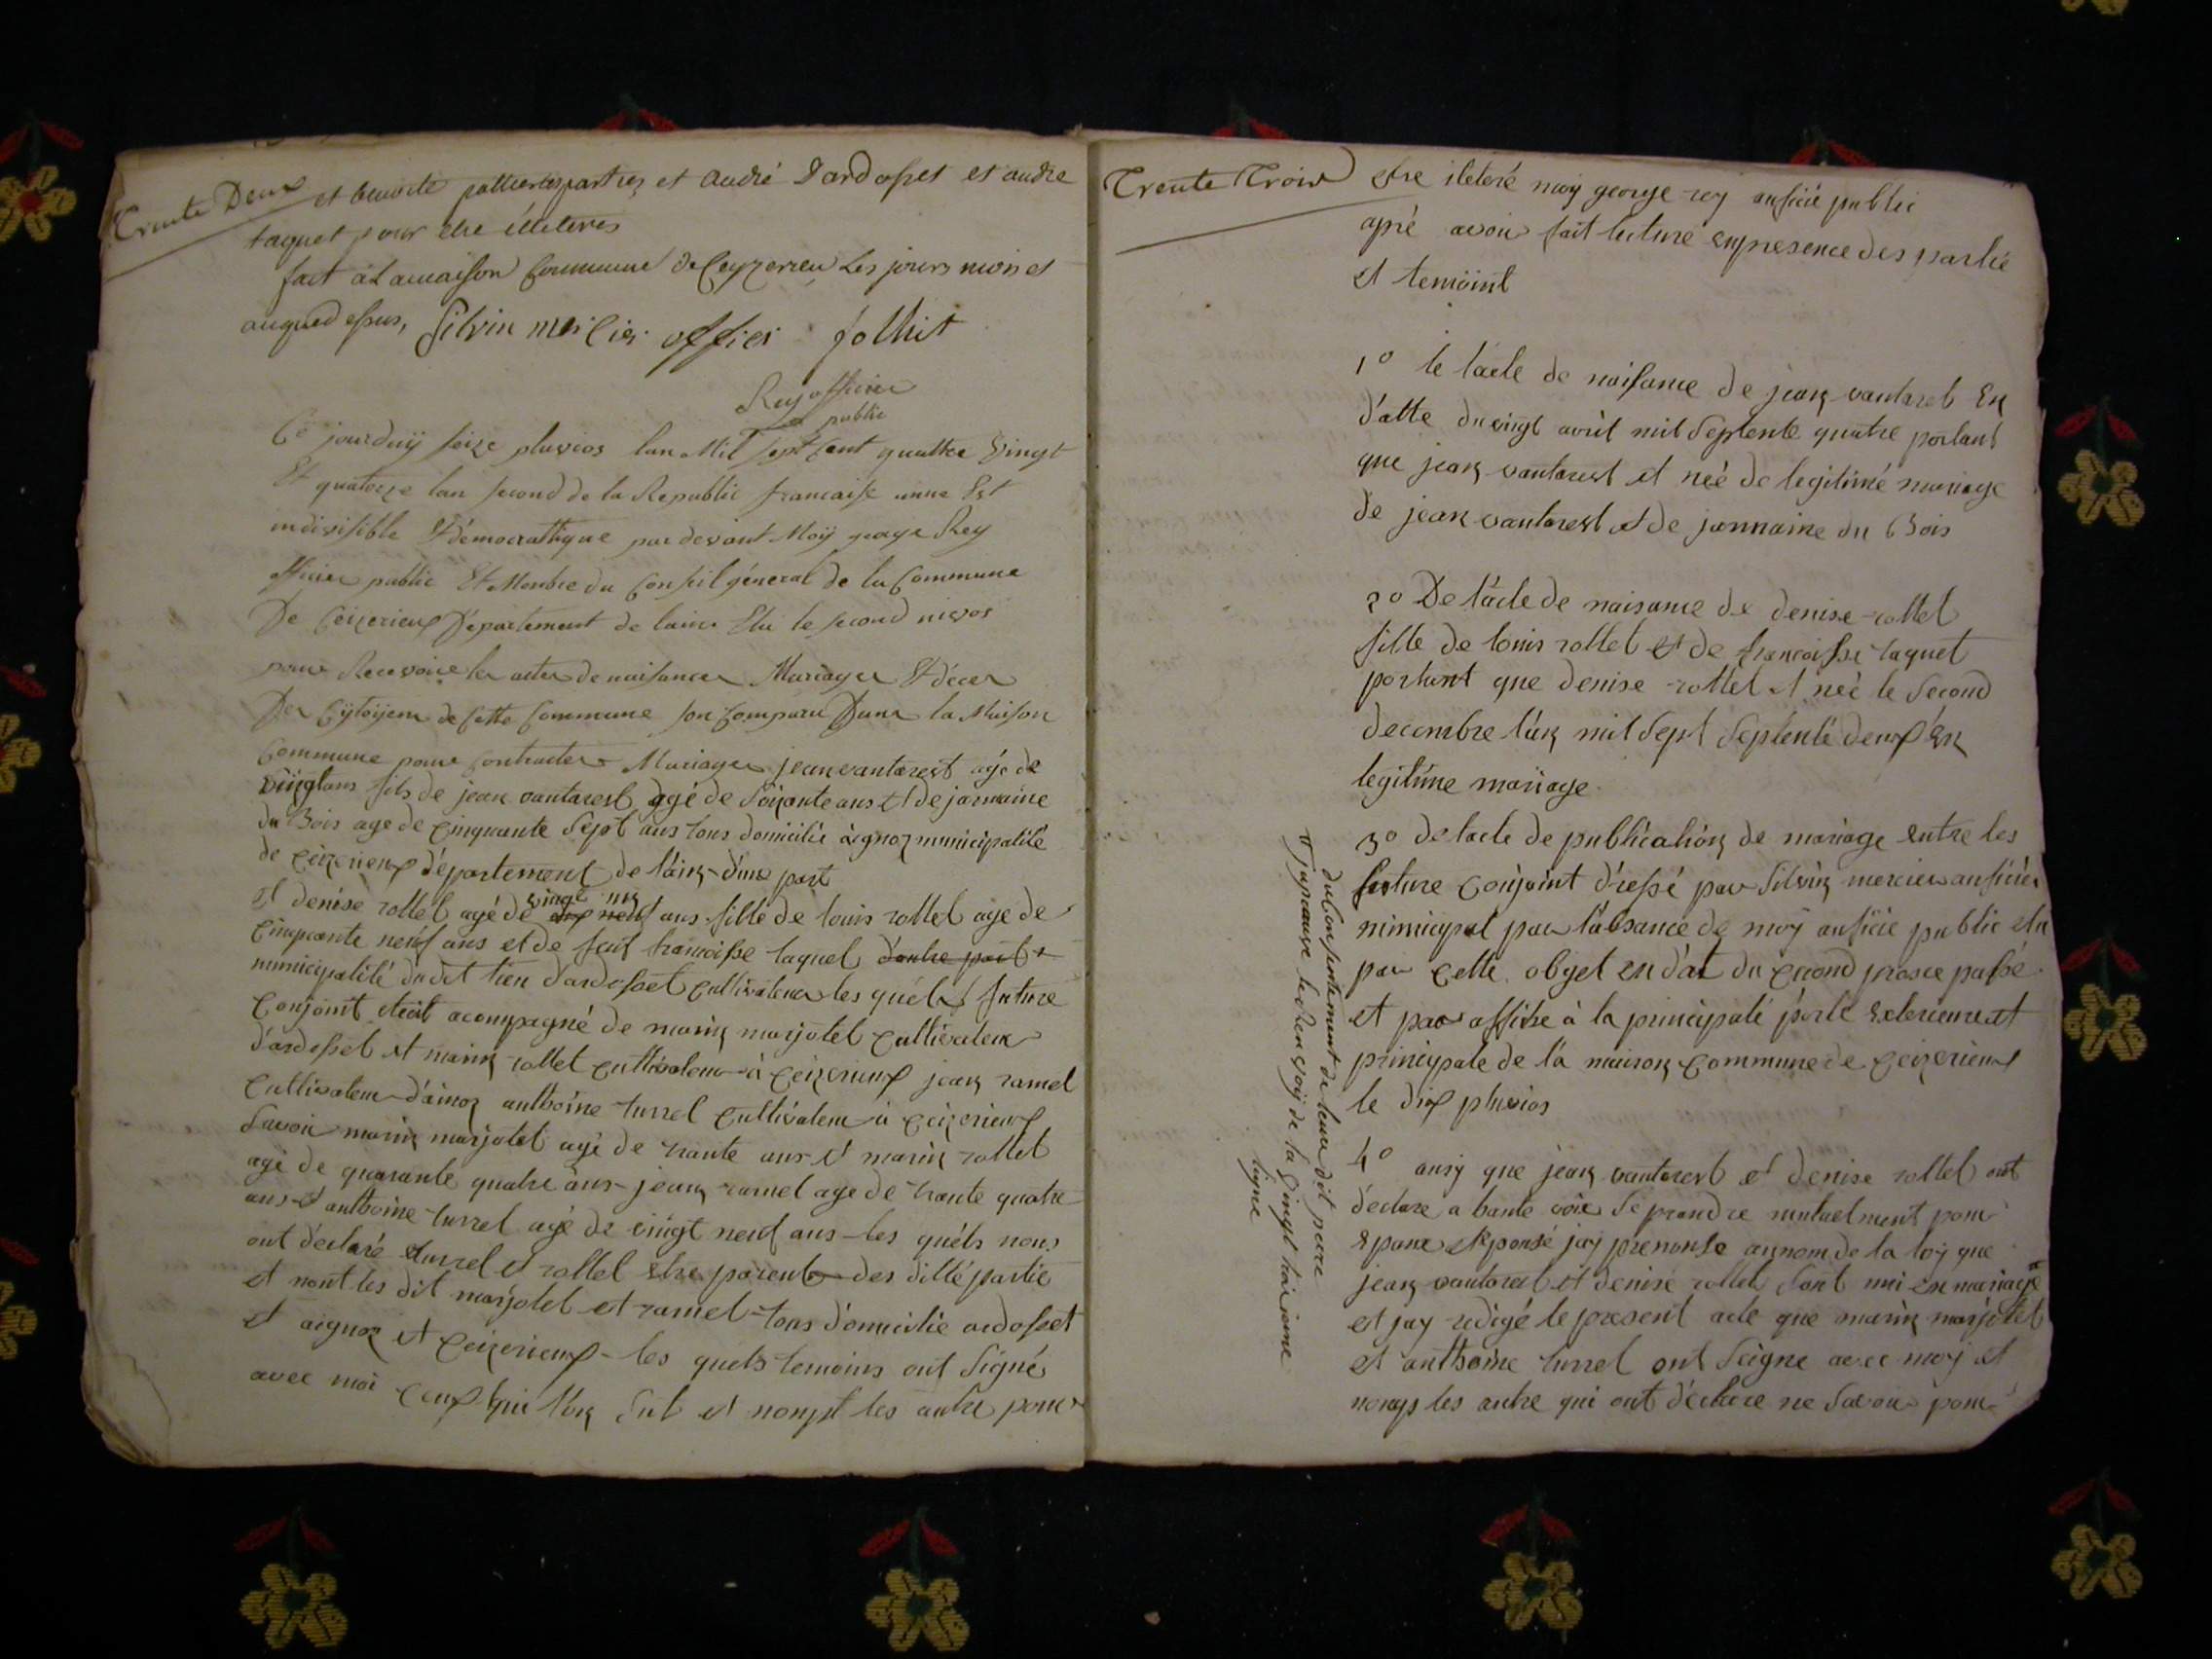 Trente Deux
et benoite pattier les parties et andré Dardosset et andre
taquet pour etre illeteres
fait à la maison Commune de Ceyzerieu Les jours mois et
an que dessus, Silvin mercier offier jolliet
Rey officier
public
Ce jourduÿ seize pluvios lan Mil sept Cent quattre Vingt
Et quatorze lan second de la Republic francaise unne Est
indivisible Et démocrathique par devant Moÿ george Rey
officier public Et Membre du Conseil géneral de la Commune
De Ceizerieux Département de lain Elu le second nivos
pour Recevoire les actes de naisances Mariages Et décer
Des Cÿtoÿens de Cette Commune son Comparu Dans la Maison
Commune pour Contracter Mariages jean vantarest agé de
vingt ans fils de jean vantarest agé de Soixante ans et de jarmaine
du Bois age de Cinquante Sept ans tous domicilié à ignoz municipalité
de Ceizerieux département de l'ain d'une part
vingt un
et denise rollet agé de dix neuf ans fille de louis rollet age de
Cinquante neuf ans et de feut francoisse taquet d'autre part +
municipalité du dit lieu d'ardosset Cultivateur les quéls future
Conjoint étoit acompagné de marin marjolet Cultivateur
d'ardosset et marin rollet Cultivateur à Ceizerieux jean ramel
Cultivateur d'ainoz anthoine turrel Cultivateur à Ceizerieux
Savoir marin marjolet agé de trante ans et marin rollet
agé de quarante quatre ans jean ramel age de trante quatre
ans et anthoine turrel agé de vingt neuf ans les quéls nous
ont déclaré turrel et rollet etre parent des ditte partie
et nont les dit marjolet et ramel tous domicilié ardosset
et aignoz et Ceizerieux les quels temoins ont Signé
avec moi Ceux qui l'on Sut et nonpt les autre pour
Trente Trois
etre ileteré moy george rey auficié public
apré avoir fait lecture en presence des partie
et temoint
1º le lacte de naisance de jean vantaret En
d'atte du vingt avril mil Septente quatre portant
que jean vantarest et neé de legitimé mariage
de jean vantarest et de jarmaine du Bois
2º De lácte de naisance de denise rollet
fille de louis rollet et de francoisse taquet
portant que denise rollet et neé le Second
decembre l'an mil Sept Septente deux En
legitime mariage
3º de lacte de publication de mariage entre les
future Conjoint dressé par Silvin mercier auficier
municipal par l'absance de moy auficié public elu
par Cette objet en d'at du second frasce passé
et par affiche à la principale porte exterieure et
principale de la maison Commune de Ceizerieux
le dix pluvios
4º ausy que jean vantarest et denise rollet ont
declaré a haute voix Se prandre mutuelment pour
epoux et eponsé jay prenonse au nom de la loy que
jean vantarest et denise rollet Sont uni en mariage
et jay redigé le present acte que marin marjolet
et anthoine turrel ont Seigne avec moy et
nonps les autre qui ont déclaré ne Savoir pour
du Consentement de leur dit perre
et japrouve le Renvoÿ de la vingt troisieme
ligne